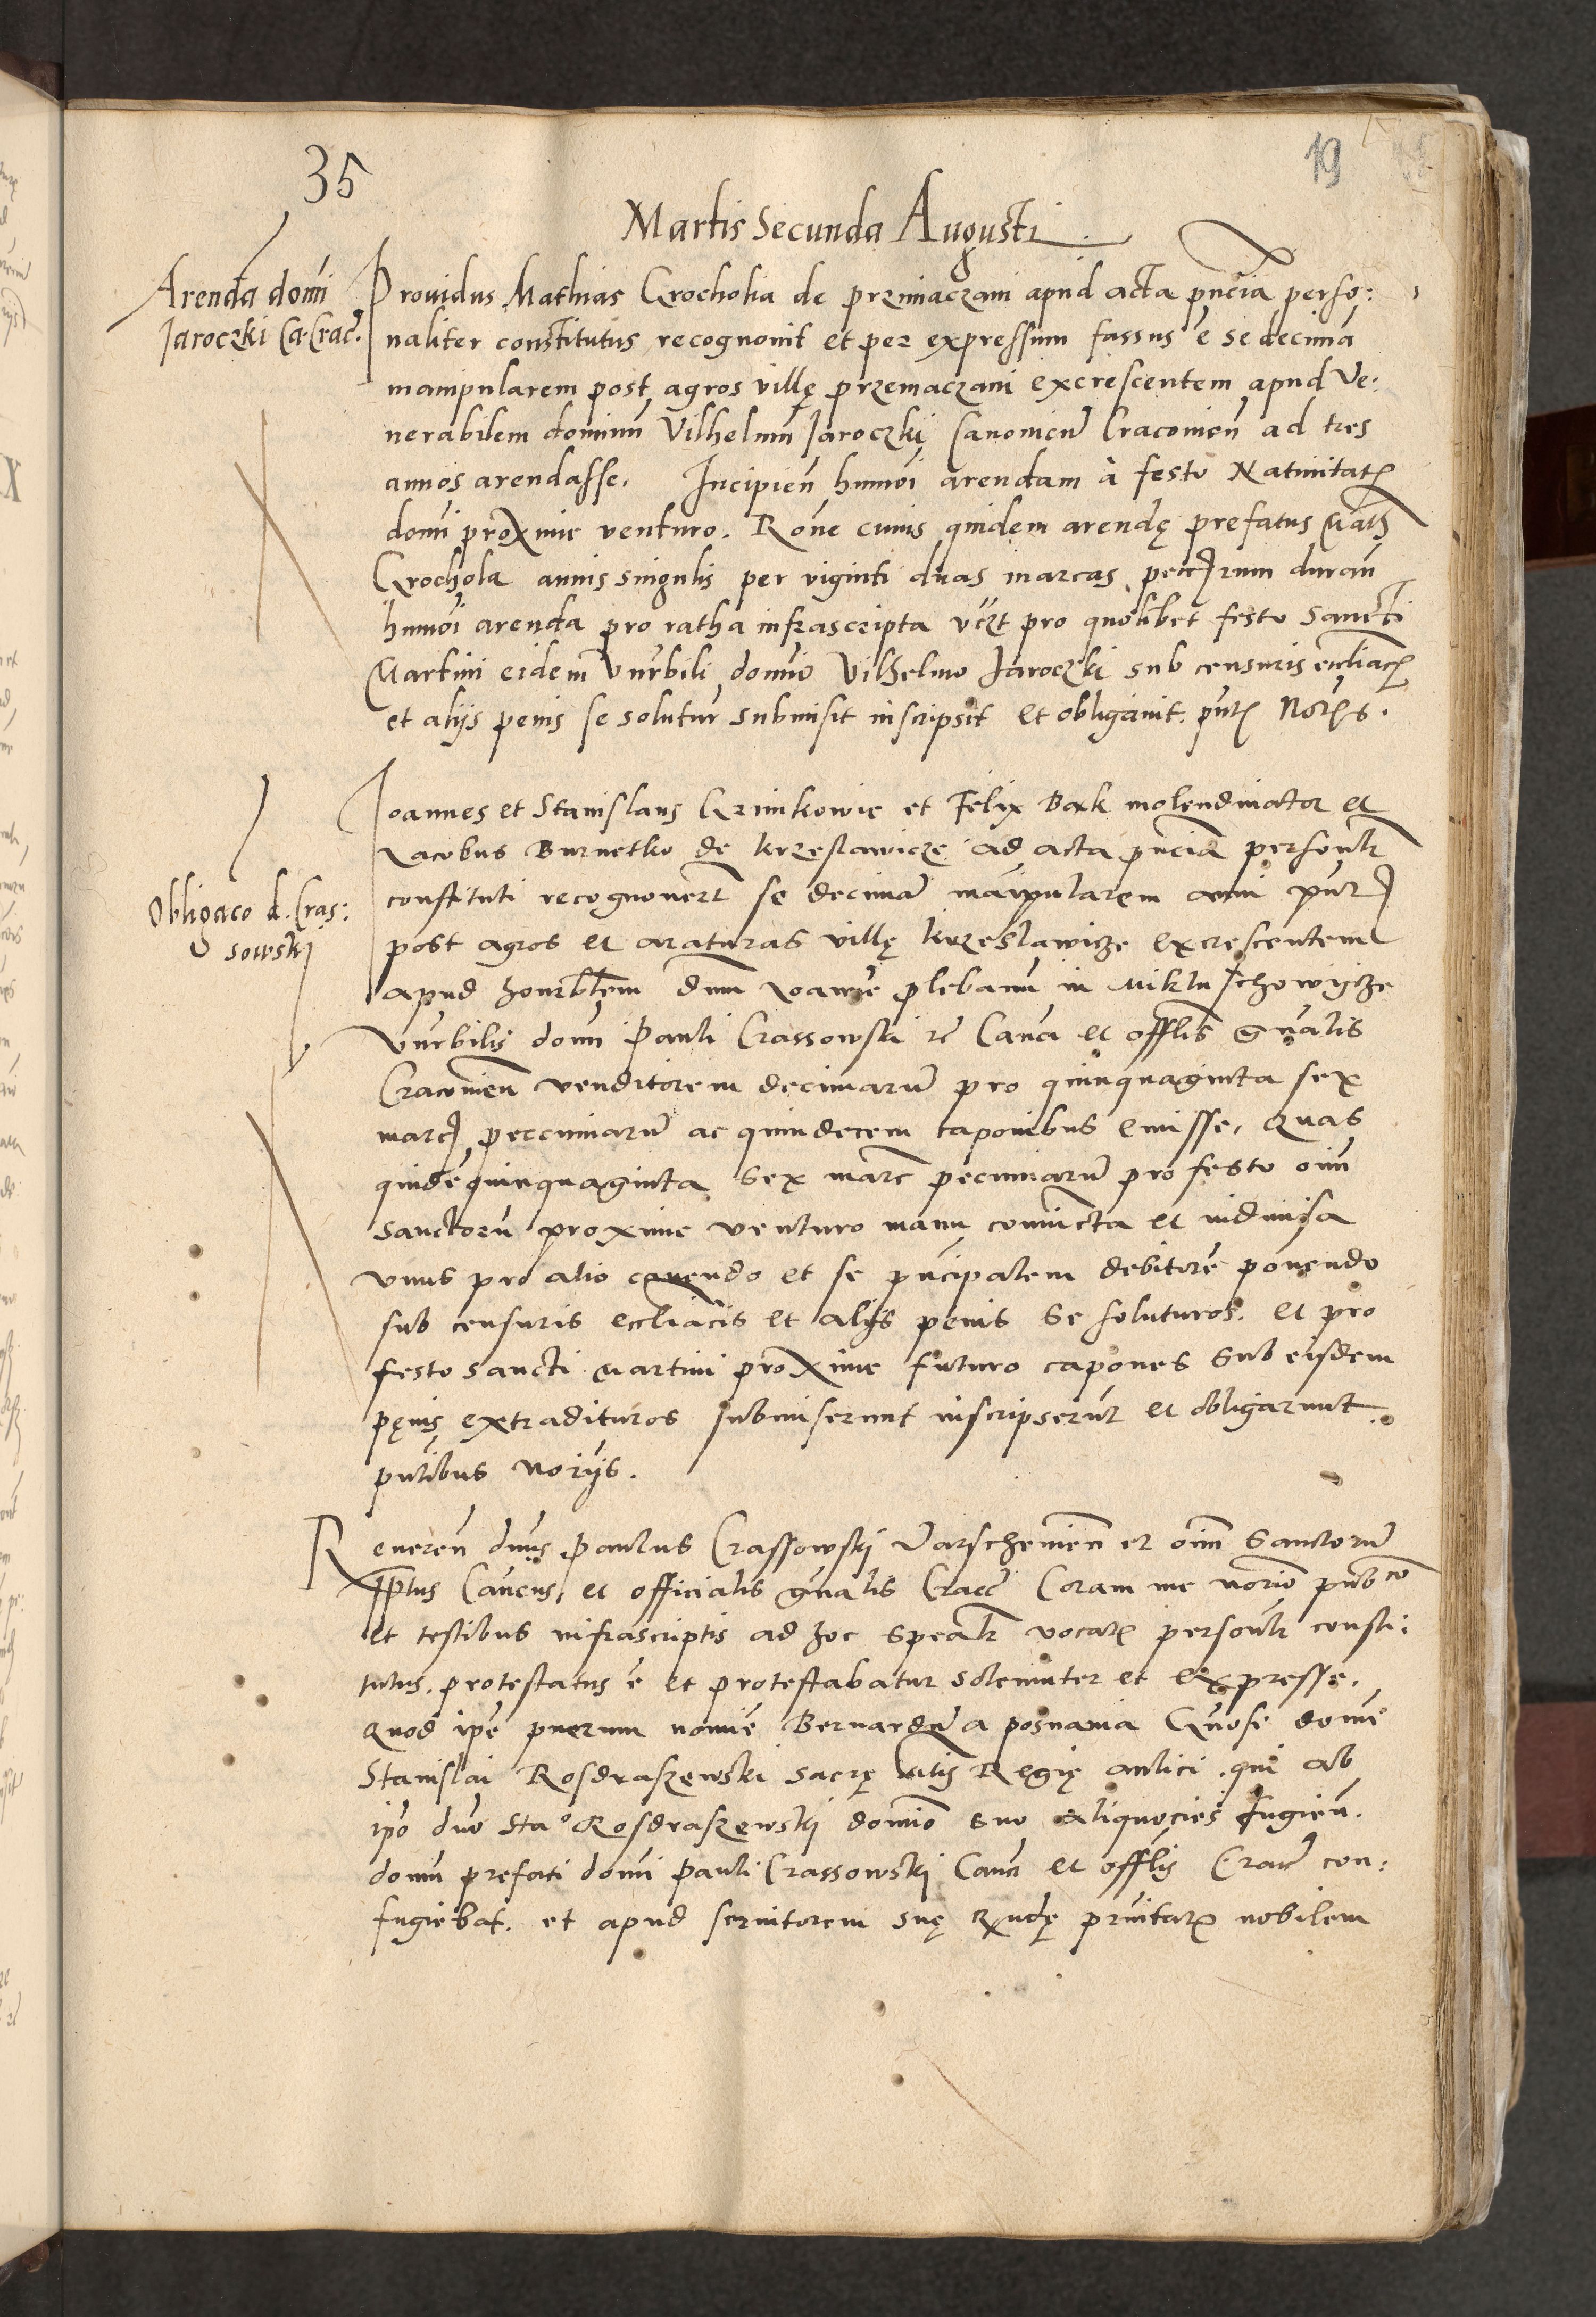 35
19
Martis Secunda Augusti
Arenda domi
Jaroczki Ca. Crac.
Prouidus Mathias Grochola de przemaczani apud acta pncia perso:
naliter constitutus recognouit et per expressum fassus e se decimā
manipularem post agros villę przemaczani excrescentem apud Ve:
nerabilem dominū Vilhelmū Jaroczki Canonicū Cracouien ad tres
annos arendasse. Incipien hmōi arendam à festo Natiuitatꝭ
domī proxime venturo. Rōne cuius quidem arendę prefatus Math
Grochola annis singulis per viginti duas marcas pecc durān
hmōi arenda pro ratha infrascripta vczt pro quolibet festo Sancti
Martini eidem Vnrbili domino Vilhelmo Jaroczki sub censuris eccliacꝭ
et alijs penis se soluturū submisit inscripsit et obligauit. pntꝭ
Obligaco d. Cras:
sowskj
Joannes et Stanislaus Grimkowie et Felix Bak molendinator et
Jacobus Burnetko de krzeslawicze ad acta pncia personlr
constituti recognouerūt se decimā manipularem anni pntꝭ
post agros et araturas villę krzeslawicze excrescentem
apud honrblem dnm Joannē plebanū in Mikluschowycze
Vnrbilis domī Pauli Crassowski Canci et offlis gnalis
Cracouien venditorem decimarū pro quinquaginta sex
marc pecuniarū ac quindecem caponibus emisse. Quas
quidē quinquaginta sex marc pecuniarū pro festo oim
sanctorū proxime venturo manu coniuncta et indiuisa
vnus pro alio cauendo et se pncipalem debitorē ponendo
sub censuris eccliacis et alijs penis se soluturos. et pro
festo sancti Martini proxime futuro capones sub eisdem
pęnis extradituros submiserunt inscripserūt et obligarunt.
pntibus norijs.
Reueren dnus Paulus Crassowskj Varschenien et oim Sanctorū
Cancus, et officialis gnalis Cracc Coram me norio pubco
et testibus infrascriptis ad hoc spealr vocatꝭ personlr consti:
tutus. protestatus ē et protestabatur solemniter et expresse.
Quod ipe puerum nomie Bernardū a posnania Gnose domī
Stanislai Rosdraszewski sacrę Mtis Regię aulici. qui ab
ipo dno Stao Rosdraszewskj domio suo aliquocies fugien.
domū prefati domi Pauli Crassowskj Canci et offlis Crac con:
fugiebat. et apud seruitorem suę Rndę prnitatꝭ nobilem